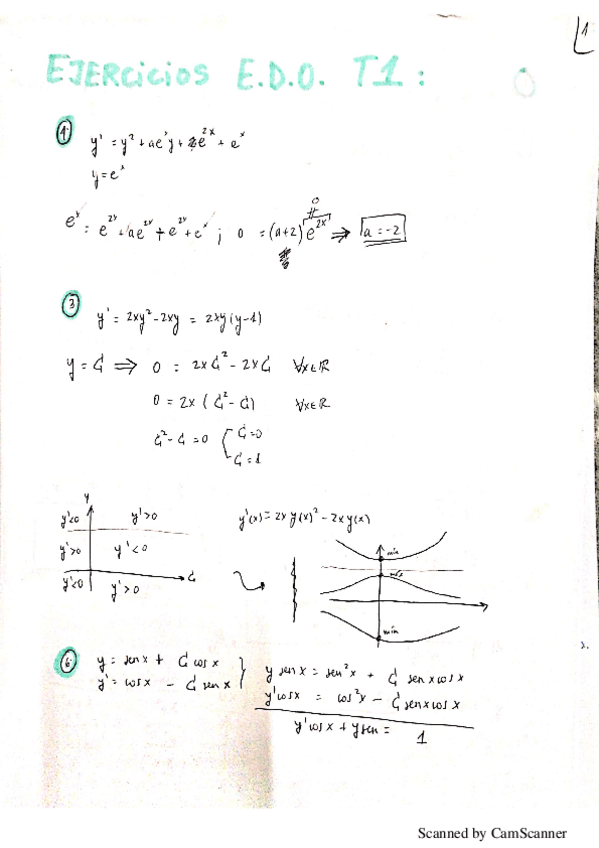 1
EJERCICIOS E.D.O. T1:
1. y' = y² + ae^x y + e^{2x} + e^x
y = e^x
e^x = e^{2x} + ae^{2x} + e^{2x} + e^x ; 0 = (a+2) e^{2x} ⇒ a = -2
≠ 0
3 y' = 2xy² - 2xy = 2xy(y-1)
y = C ⇒ 0 = 2xC² - 2xC ∀x∈ℝ
0 = 2x (C² - C) ∀x∈ℝ
C² - C = 0 C=0
C=1
y
y'<0 y'>0 y'(x) = 2x y(x)² - 2x y(x)
y'>0 y'<0
y'<0 y'>0
min
máx
min
6. y = sen x + C cos x
y' = cos x - C sen x
y sen x = sen² x + C sen x cos x
y' cos x = cos² x - C sen x cos x
y' cos x + y sen = 1
Scanned by CamScanner